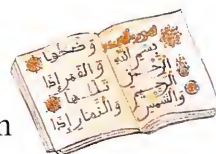 بسم الله
الرحمن
الرحيم
والشمس
وضحها
والقمر إذا
تلها
والنهار إذا
n